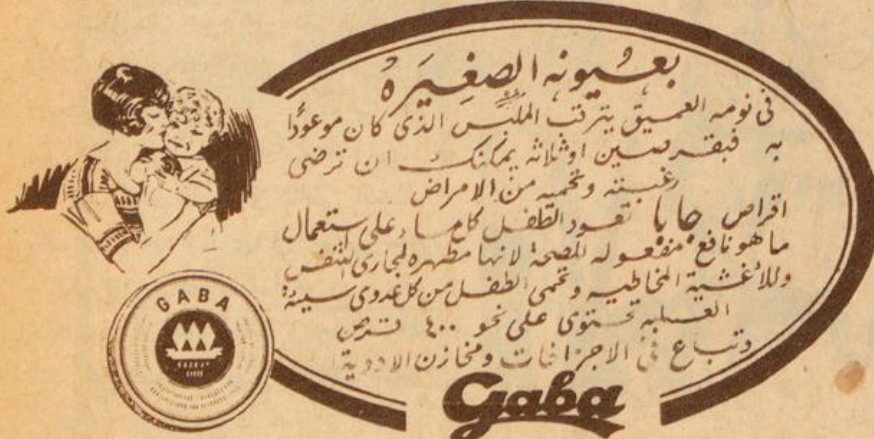 بعيونه الصغيره
فى نومه العميق يترقب الملبس الذى كان موعودًا
به فبقرصين او ثلاثه يمكنك ان ترضى
رغبته وتحميه من الامراض
اقراص جابا تعود الطفل كل مساء على استعمال
ما هو نافع مفعوله للصحة لانها مطهره لمجارى التنفس
وللأغشية المخاطيه وتحمى الطفل من كل عدوى سيئة
العلبه تحتوى على نحو ٤٠٠ قرص
وتباع فى الاجزاخات ومخازن الادوية
GABA
Gaba